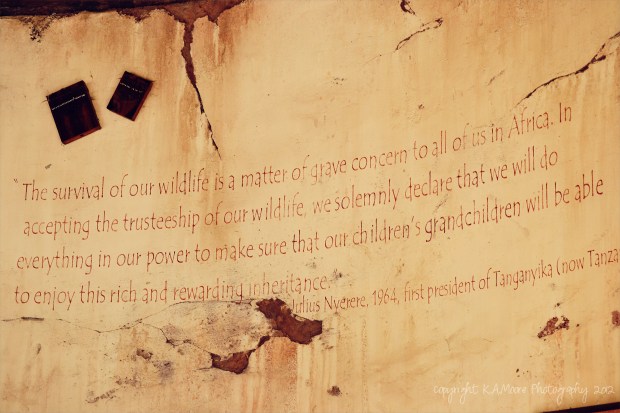 "The survival of our wildlife is a matter of grave concern to all of us in Africa. In
accepting the trusteeship of our wildlife, we solemnly declare that we will do
everything in our power to make sure that our children's grandchildren will be able
to enjoy this rich and rewarding inheritance."
Julius Nyerere, 1964, first president of Tanganyika (now Tanza
copyright K.A.Moore Photography 2012